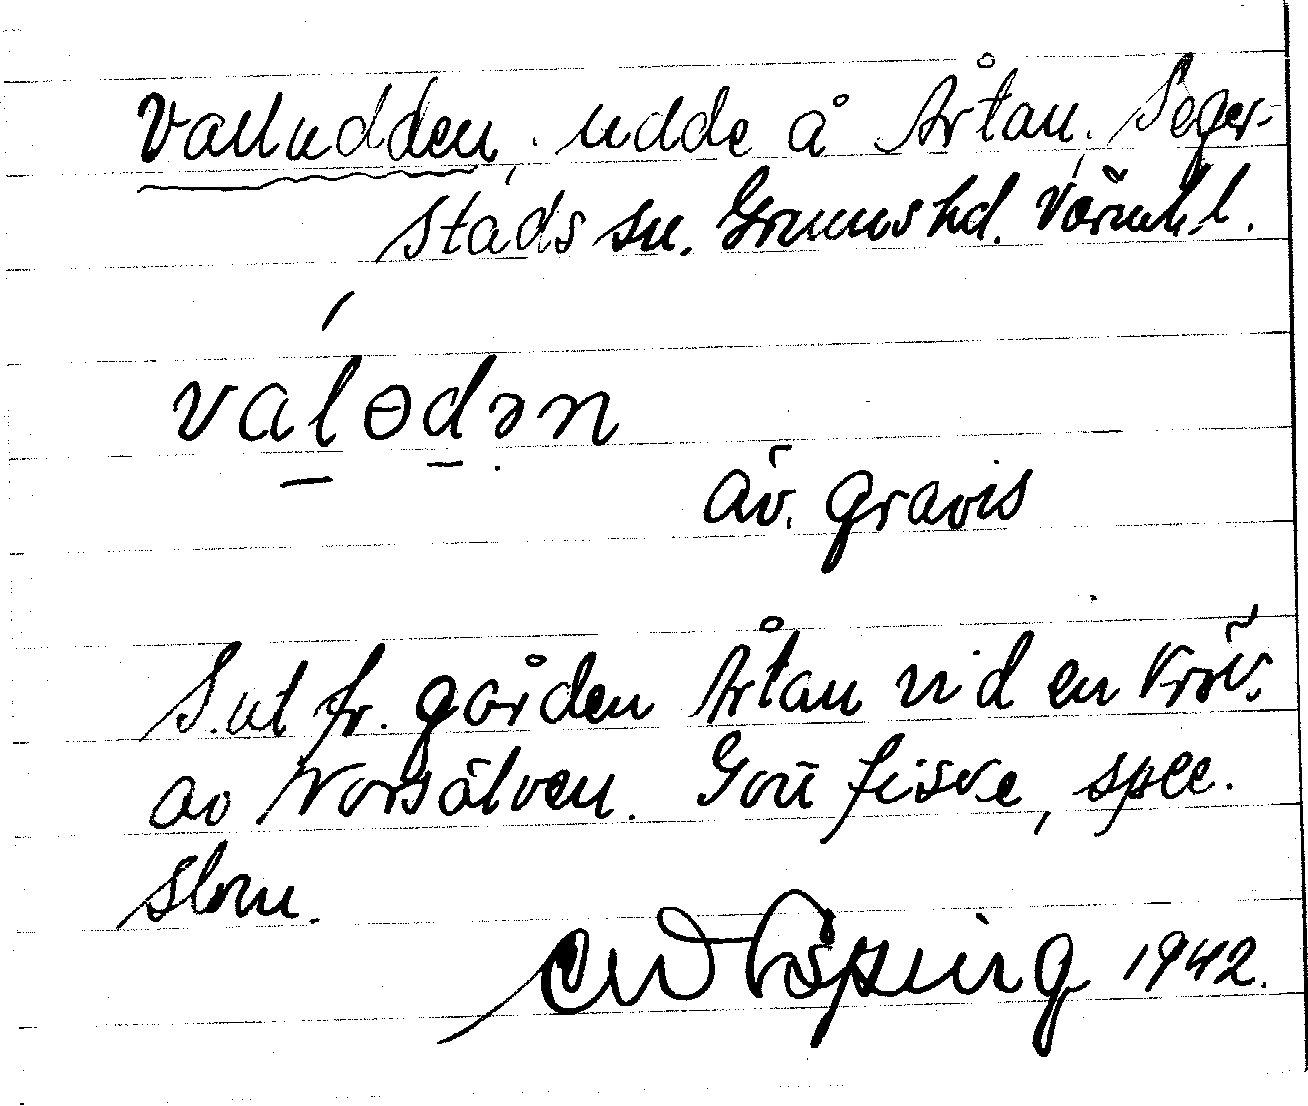 Valludden, udde å Årtan, Seger-
stads sn. Grums hd. Värml. l.
válɵdən
äv. gravis
S.ut fr. gården Årtan vid en krök
av Norsälven. Gott fiske, spec.
slom.
1942.